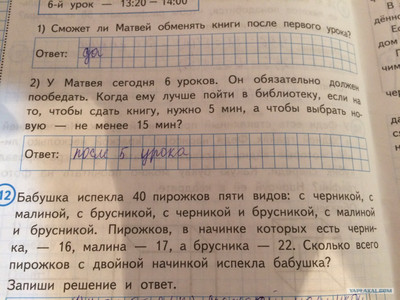 6-й урок — 13:20 – 14:00
1) Сможет ли Матвей обменять книги после первого урока?
Ответ: да
2) У Матвея сегодня 6 уроков. Он обязательно должен
пообедать. Когда ему лучше пойти в библиотеку, если на
то, чтобы сдать книгу, нужно 5 мин, а чтобы выбрать но-
вую — не менее 15 мин?
Ответ: после 5 урока
12 Бабушка испекла 40 пирожков пяти видов: с черникой, с
малиной, с брусникой, с черникой и брусникой, с малиной
и брусникой. Пирожков, в начинке которых есть черни-
ка, — 16, малина — 17, а брусника — 22. Сколько всего
пирожков с двойной начинкой испекла бабушка?
Запиши решение и ответ.